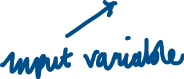 input variable